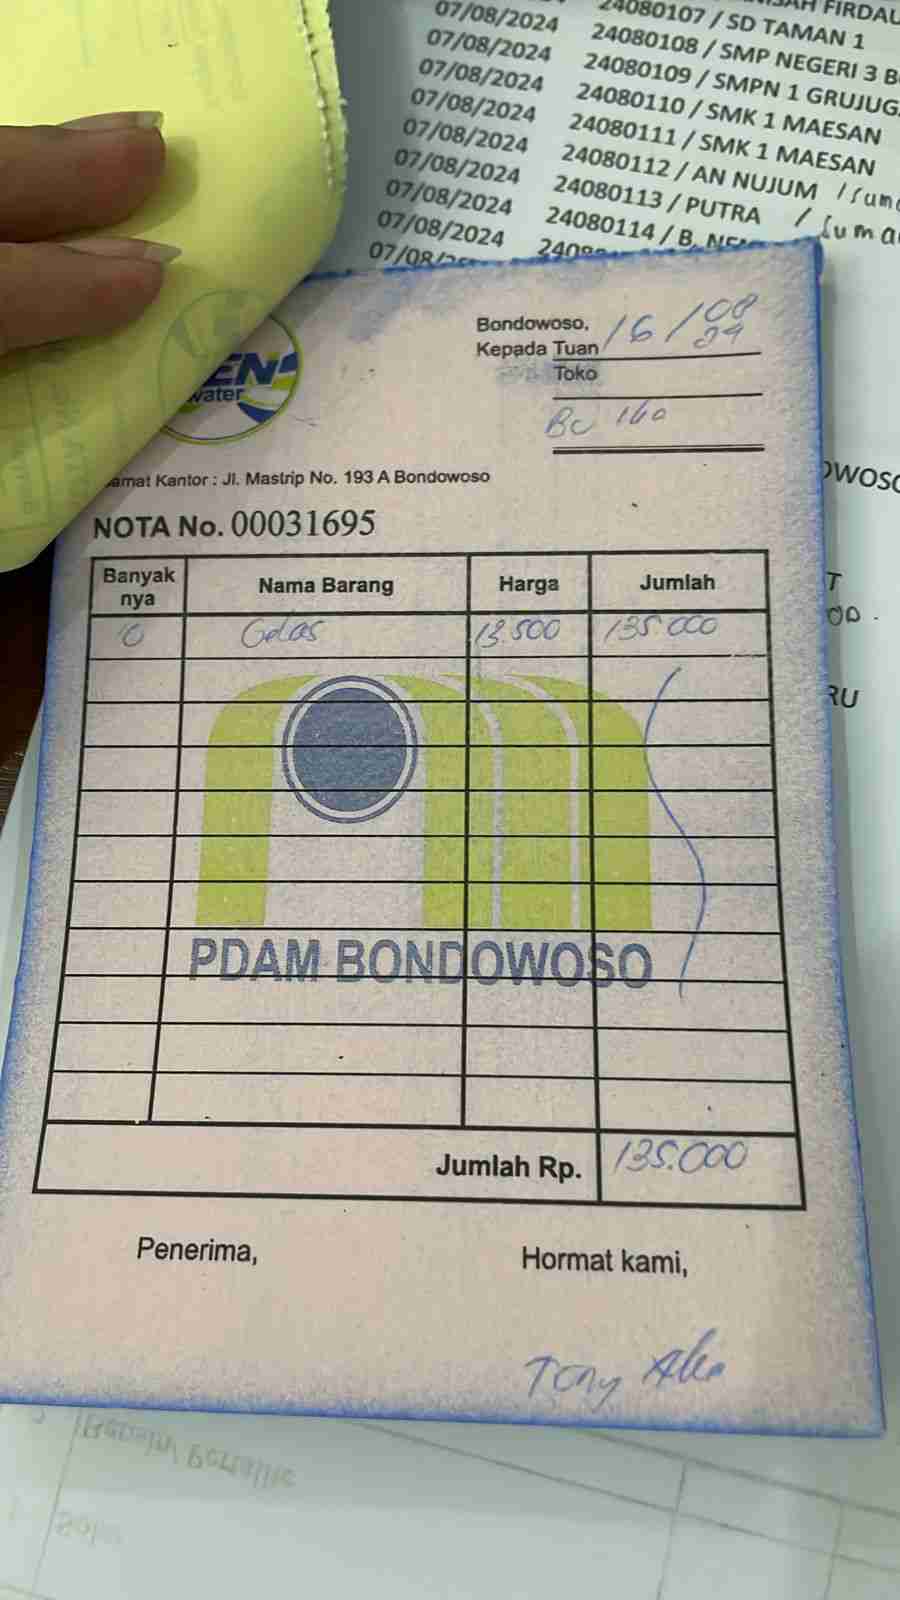 NISAH FIRDAU
07/08/2024 24080107 / SD TAMAN 1
07/08/2024 24080108 / SMP NEGERI 3 B
07/08/2024 24080109 / SMPN 1 GRUJUG
07/08/2024 24080110 / SMK 1 MAESAN
07/08/2024 24080111 / SMK 1 MAESAN
07/08/2024 24080112 / AN NUJUM
07/08/2024 24080113 / PUTRA
07/08/2024 24080114 / B.
07/08/
water
Bondowoso, 16/08
24
Kepada Tuan
Toko
amat Kantor : Jl. Mastrip No. 193 A Bondowoso
NOTA No. 00031695
Banyak nya Nama Barang Harga Jumlah
10 Gelas 13.500 135.000
PDAM BONDOWOSO
Jumlah Rp. 135.000
Penerima, Hormat kami,
Tony
OWOSO
T
RU